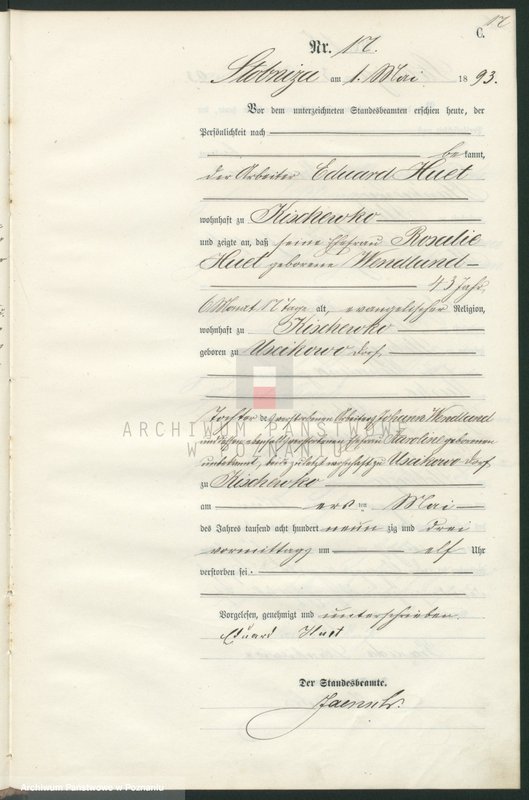 17
C.
Nr. 17.
am 1. Mai 1893.
Vor dem unterzeichneten Standesbeamten erschien heute, der
Persönlichkeit nach
be kannt,
der Arbeiter Eduard Huet
wohnhaft zu Kischewko
und zeigte an, daß seine Ehefrau Rosalie
Huet geborene Wendland
43 Jahr,
6 Monat 17 Tage alt, evangelischer Religion,
wohnhaft zu Kischewko
geboren zu Uscikowo dorf,
Tochter des verstorbenen Arbeiters Johann Wendland
und dessen verstorbenen Ehefrau Karoline geborenen
unbekannt, zuletzt wohnhaft zu Uscikowo dorf
zu Kischewko
am ersten Mai
des Jahres tausend acht hundert neun zig und drei
vormittags um elf Uhr
verstorben sei.
Vorgelesen, genehmigt und unterschrieben.
Eduard Huet
Der Standesbeamte.
ARCHIWUM PAŃSTWOWE
W POZNANIU
Archiwum Państwowe w Poznaniu